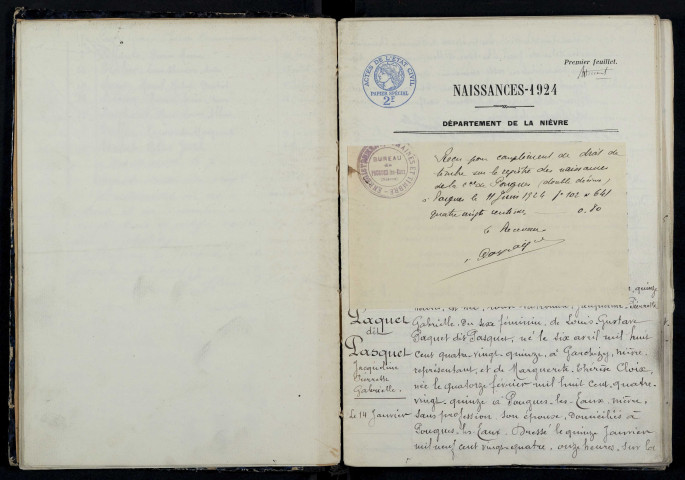 Premier feuillet.
ACTES DE L'ÉTAT CIVIL
PAPIER SPÉCIAL
2F
NAISSANCES-1924
DÉPARTEMENT DE LA NIÈVRE
BUREAU
Reçu pour complément de droit de
timbre sur le registre des naissances
de la Cne de Pougues (double décime)
à Pougues le 11 Juin 1924 f° 102 n° 641
quatre vingt centimes 0.80
Le Receveur
quinze
Jacqueline Pierrette
Paquet
dit
Pasquet
Jacqueline
Pierrette
Gabrielle.
Le 14 Janvier
Gabrielle, du sexe féminin, de Louis Gustave
Paquet dit Pasquet, né le six avril mil huit
cent quatre-vingt-quinze, à Garchizy, Nièvre,
représentant, et de Marguerite Thérèse Cloix,
née le quatorze février mil huit cent quatre-
vingt-quinze à Pougues-les-Eaux, Nièvre,
sans profession, son épouse, domiciliés à
Pougues-les-Eaux. Dressé le quinze Janvier
mil neuf cent vingt-quatre, onze heures, sur la